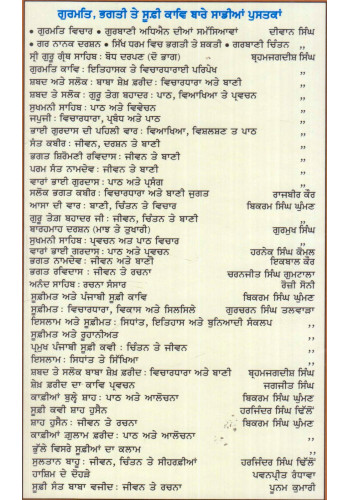 ਗੁਰਮਤਿ, ਭਗਤੀ ਤੇ ਸੂਫ਼ੀ ਕਾਵਿ ਬਾਰੇ ਸਾਡੀਆਂ ਪੁਸਤਕਾਂ
• ਗੁਰਮਤਿ ਵਿਚਾਰ • ਗੁਰਬਾਣੀ ਅਧਿਐਨ ਦੀਆਂ ਸਮੱਸਿਆਵਾਂ ਦੀਵਾਨ ਸਿੰਘ
• ਗੁਰ ਨਾਨਕ ਦਰਸ਼ਨ • ਸਿੱਖ ਧਰਮ ਵਿਚ ਭਗਤੀ ਤੇ ਸ਼ਕਤੀ • ਗੁਰਬਾਣੀ ਚਿੰਤਨ ,,
ਸ੍ਰੀ ਗੁਰੂ ਗ੍ਰੰਥ ਸਾਹਿਬ: ਬੋਧ ਦਰਪਣ (ਦੋ ਭਾਗ) ਬ੍ਰਹਮਜਗਦੀਸ਼ ਸਿੰਘ
ਗੁਰਮਤਿ ਕਾਵਿ : ਇਤਿਹਾਸਕ ਤੇ ਵਿਚਾਰਧਾਰਾਈ ਪਰਿਪੇਖ ,,
ਸ਼ਬਦ ਅਤੇ ਸਲੋਕ: ਬਾਬਾ ਸ਼ੇਖ਼ ਫ਼ਰੀਦ: ਵਿਚਾਰਧਾਰਾ ਅਤੇ ਬਾਣੀ ,,
ਸ਼ਬਦ ਤੇ ਸਲੋਕ: ਗੁਰੂ ਤੇਗ ਬਹਾਦਰ: ਪਾਠ, ਵਿਆਖਿਆ ਤੇ ਪ੍ਰਵਚਨ ,,
ਸੁਖਮਨੀ ਸਾਹਿਬ: ਪਾਠ ਅਤੇ ਵਿਵੇਚਨ ,,
ਜਪੁਜੀ: ਵਿਚਾਰਧਾਰਾ, ਪ੍ਰਬੰਧ ਅਤੇ ਪਾਠ ,,
ਭਾਈ ਗੁਰਦਾਸ ਦੀ ਪਹਿਲੀ ਵਾਰ: ਵਿਆਖਿਆ, ਵਿਸ਼ਲਸ਼ਣ ਤੇ ਪਾਠ ,,
ਸੰਤ ਕਬੀਰ: ਜੀਵਨ, ਦਰਸ਼ਨ ਤੇ ਬਾਣੀ ,,
ਭਗਤ ਸ਼ਿਰੋਮਣੀ ਰਵਿਦਾਸ: ਜੀਵਨ ਤੇ ਬਾਣੀ ,,
ਪਰਮ ਸੰਤ ਨਾਮਦੇਵ: ਜੀਵਨ ਤੇ ਬਾਣੀ ,,
ਵਾਰਾਂ ਭਾਈ ਗੁਰਦਾਸ: ਪਾਠ ਅਤੇ ਪ੍ਰਸੰਗ ,,
ਸਲੋਕ ਭਗਤ ਕਬੀਰ: ਵਿਚਾਰਧਾਰਾ ਅਤੇ ਬਾਣੀ ਜੁਗਤ ਰਾਜਬੀਰ ਕੌਰ
ਆਸਾ ਦੀ ਵਾਰ: ਬਾਣੀ, ਚਿੰਤਨ ਤੇ ਵਿਚਾਰ ਬਿਕਰਮ ਸਿੰਘ ਘੁੰਮਣ
ਗੁਰੂ ਤੇਗ ਬਹਾਦਰ ਜੀ: ਜੀਵਨ, ਚਿੰਤਨ ਤੇ ਬਾਣੀ ,,
ਬਾਰਹਮਾਹ ਦਰਸ਼ਨ (ਮਾਝ ਤੇ ਤੁਖਾਰੀ) ਗੁਰਮੁਖ ਸਿੰਘ
ਸੁਖਮਨੀ ਸਾਹਿਬ: ਪ੍ਰਵਚਨ ਅਤ ਪਾਠ ਵਿਚਾਰ ,,
ਵਾਰਾਂ ਭਾਈ ਗੁਰਦਾਸ: ਪਾਠ ਅਤੇ ਪ੍ਰਵਚਨ ਹਰਨੇਕ ਸਿੰਘ ਕੋਮਲ
ਭਗਤ ਨਾਮਦੇਵ: ਜੀਵਨ ਅਤੇ ਬਾਣੀ ਇਕਬਾਲ ਕੌਰ
ਭਗਤ ਰਵਿਦਾਸ: ਜੀਵਨ ਤੇ ਰਚਨਾ ਚਰਨਜੀਤ ਸਿੰਘ ਗੁਮਟਾਲਾ
ਅਨੰਦ ਸਾਹਿਬ: ਰਚਨਾ ਸੰਸਾਰ ਰੋਜ਼ੀ ਸੋਨੀ
ਸੂਫ਼ੀਮਤ ਅਤੇ ਪੰਜਾਬੀ ਸੂਫ਼ੀ ਕਾਵਿ ਬਿਕਰਮ ਸਿੰਘ ਘੁੰਮਣ
ਸੂਫ਼ੀਮਤ: ਵਿਚਾਰਧਾਰਾ, ਵਿਕਾਸ ਅਤੇ ਸਿਲਸਿਲੇ ਗੁਰਚਰਨ ਸਿੰਘ ਤਲਵਾੜਾ
ਇਸਲਾਮ ਅਤੇ ਸੂਫ਼ੀਮਤ: ਸਿਧਾਂਤ, ਇਤਿਹਾਸ ਅਤੇ ਬੁਨਿਆਦੀ ਸੰਕਲਪ ,,
ਸੂਫ਼ੀਮਤ ਅਤੇ ਰੂਹਾਨੀਅਤ ,,
ਪ੍ਰਮੁਖ ਪੰਜਾਬੀ ਸੂਫ਼ੀ ਕਵੀ : ਚਿੰਤਨ ਤੇ ਜੀਵਨ ,,
ਇਸਲਾਮ: ਸਿਧਾਂਤ ਤੇ ਸਿੱਖਿਆ ,,
ਸ਼ਬਦ ਤੇ ਸਲੋਕ ਬਾਬਾ ਸ਼ੇਖ਼ ਫ਼ਰੀਦ: ਵਿਚਾਰਧਾਰਾ ਅਤੇ ਬਾਣੀ ਬ੍ਰਹਮਜਗਦੀਸ਼ ਸਿੰਘ
ਸ਼ੇਖ਼ ਫ਼ਰੀਦ ਦਾ ਕਾਵਿ ਪ੍ਰਵਚਨ ਜਗਜੀਤ ਸਿੰਘ
ਕਾਫ਼ੀਆਂ ਬੁਲ੍ਹੇ ਸ਼ਾਹ: ਪਾਠ ਅਤੇ ਆਲੋਚਨਾ ਬਿਕਰਮ ਸਿੰਘ ਘੁੰਮਣ
ਸੂਫ਼ੀ ਕਵੀ ਸ਼ਾਹ ਹੁਸੈਨ ਹਰਜਿੰਦਰ ਸਿੰਘ ਢਿੱਲੋਂ
ਸ਼ਾਹ ਹੁਸੈਨ: ਜੀਵਨ ਤੇ ਰਚਨਾ ਬਿਕਰਮ ਸਿੰਘ ਘੁੰਮਣ
ਕਾਫ਼ੀਆਂ ਗ਼ੁਲਾਮ ਫ਼ਰੀਦ: ਪਾਠ ਅਤੇ ਆਲੋਚਨਾ ,,
ਭੁੱਲੇ ਵਿਸਰੇ ਸੂਫ਼ੀਆਂ ਦਾ ਕਲਾਮ ,,
ਸੁਲਤਾਨ ਬਾਹੂ: ਜੀਵਨ, ਚਿੰਤਨ ਤੇ ਸੀਹਰਫ਼ੀਆਂ ਹਰਜਿੰਦਰ ਸਿੰਘ ਢਿੱਲੋਂ
ਹਾਸ਼ਿਮ ਦੇ ਦੋਹੜੇ ਪਵਨਪ੍ਰੀਤ ਰੰਧਾਵਾ
ਸੂਫ਼ੀ ਸੰਤ ਬਾਬਾ ਵਜੀਦ: ਜੀਵਨ ਤੇ ਰਚਨਾ ਪੂਨਮ ਕੁਮਾਰੀ